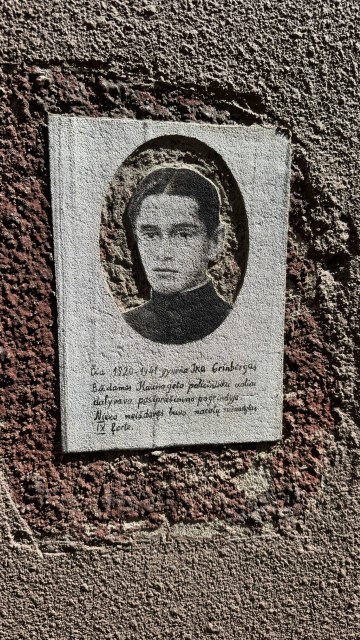 Čia 1920-1941 gyveno Ika Grinbergas
Būdamas Kauno geto policininku
dalyvavo pasipriešinimo pogrindyje
Nieko neišdavęs buvo nacių sušaudytas
IX forte.